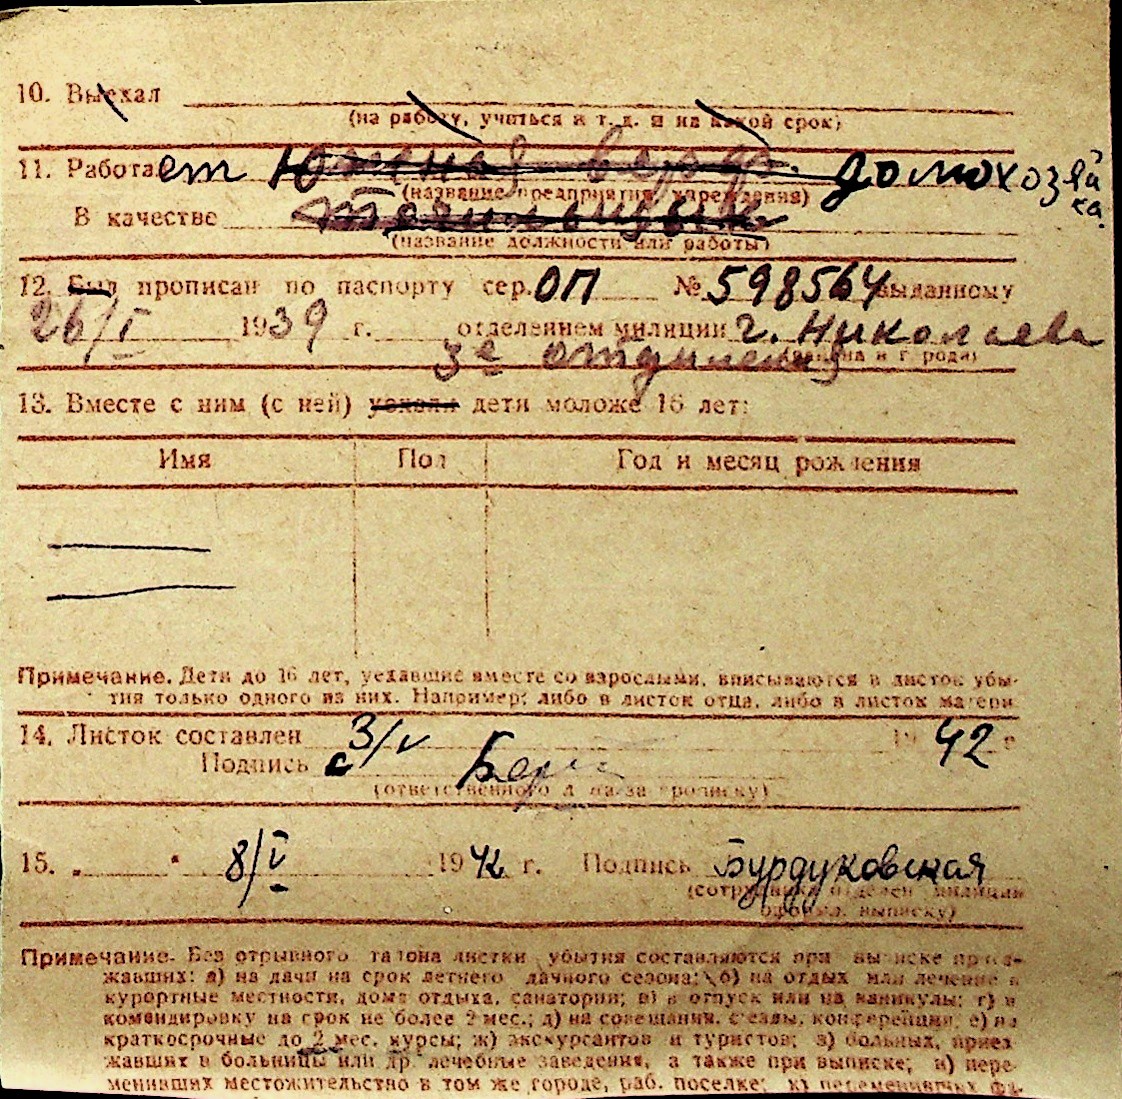 10. Выехал
(на работу, учиться и т. д. и на какой срок)
11. Работает Южная верфь. домохозяйка
(название предприятия, учреждения)
В качестве
(название должности или работы)
12. Был прописан по паспорту сер. ОП № 598564 выданному
26/I 1939 г. отделением милиции г. Николаева
3е отделения
13. Вместе с ним (с ней) уехали дети моложе 16 лет:
Имя Пол Год и месяц рождения
Примечание. Дети до 16 лет, уехавшие вместе со взрослыми, вписываются в листок убы-
тия только одного из них. Например: либо в листок отца, либо в листок матери
14. Листок составлен 3/V 1942 г
Подпись
(ответственного за прописку)
15. „ " 8/V 1942 г. Подпись Бурдуковская
(сотрудника отделен. милиции
выписку)
Примечание. Без отрывного талона листки убытия составляются при выписке приез-
жавших: а) на дачи на срок летнего дачного сезона; б) на отдых или лечение в
курортные местности, дома отдыха, санатории; в) в отпуск или на каникулы; г) в
командировку на срок не более 2 мес.; д) на совещания, съезды, конференции; е) на
краткосрочные до 2 мес. курсы; ж) экскурсантов и туристов; з) больных, приез
жавших в больницы или др. лечебные заведения, а также при выписке; и) пере-
менивших местожительство в том же городе, раб. поселке; к) переменивших фа-